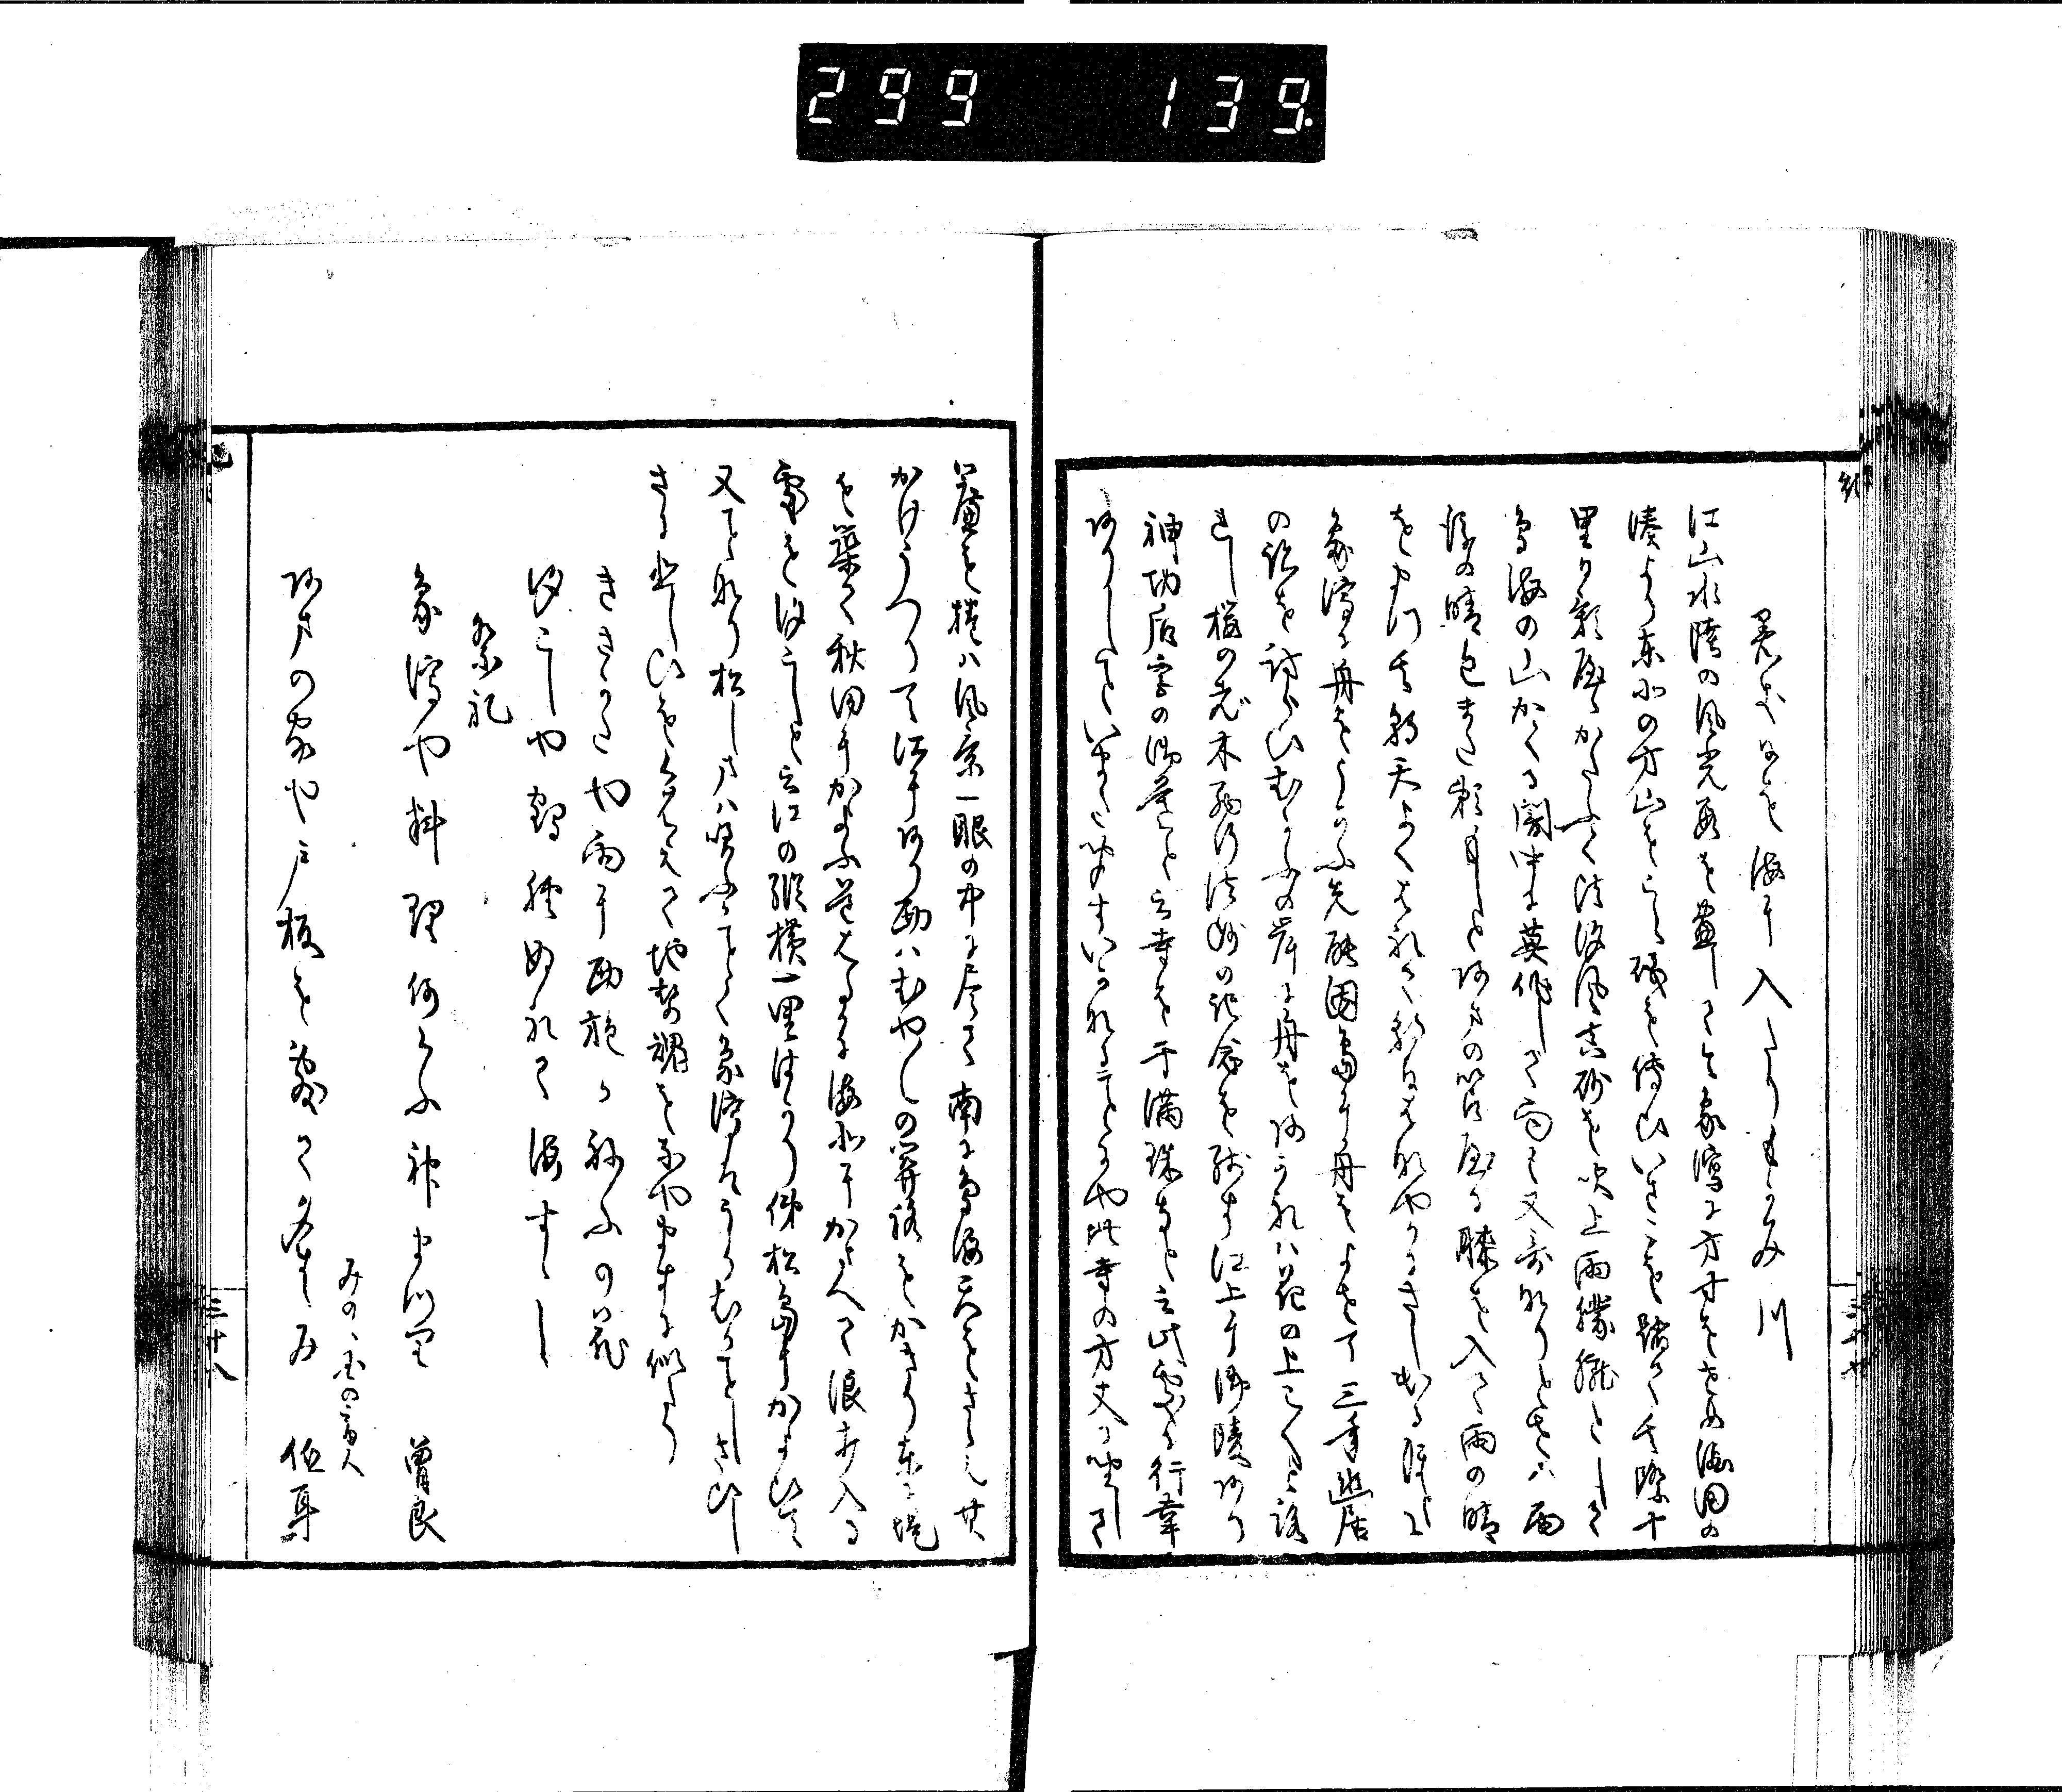 暑き日を海に入たりもかみ川
江山水陸の風光数を尽して今象潟に方寸をせめ酒田の
湊より東北の方山をこえ礒を伝ひいさこを踏て其際十
里日影やゝかたふく比汐風真砂を吹上雨朦朧として
鳥海の山かくる闇中に莫作して雨も又奇なりとせは雨
後の晴色また頼もしとあまの笘屋に膝を入て雨の晴
をまつ其朝天よくはれて朝日はなやかにさし出る程に
象潟に舟をうかふ先能因嶋に舟をよせて三年幽居
の跡を訪らひむかふの岸に舟をあかれは花の上こくと詠
れし桜の老木西行法師の記念を残す江上に御陵あり
神功后宮の御墓と云寺を干満珠寺と云此処に行幸
ありしこといまた聞すいかなることにや此寺の方丈に坐して
簾を捲は風景一眼の中に尽て南に鳥海天をさゝえ其
かけうつりて江にあり西はむや〱の関路をかきり東に堤
を築て秋田にかよふ道はるかに海北にかまへて浪打入る
処を汐こしと云江の縦横一里はかり俤松島にかよひて
又ことなり松しまは笑ふことく象潟はうらむかことしさひし
さに悲しひをくはえて地勢魂をなやますに似たり
きさかたや雨に西施かねふの花
汐こしや鶴脛ぬれて海すゝし
祭礼
象潟や料理何くふ神まつり 曾良
みのゝ国の商人
あまの家や戸板を敷て夕すゝみ 低耳
三十八